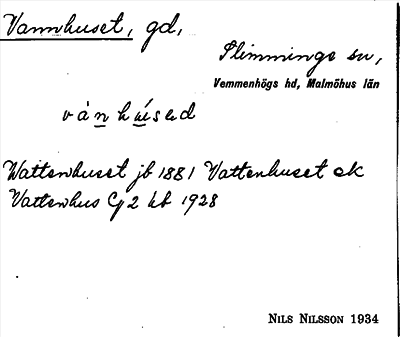 Vannhuset, gd,
Slimminge sn,
Vemmenhögs hd, Malmöhus län
vànhúsəd
Wattenhuset jb 1881 Vattenhuset ek
Vattenhus Cg 2 kb 1928
NILS NILSSON 1934